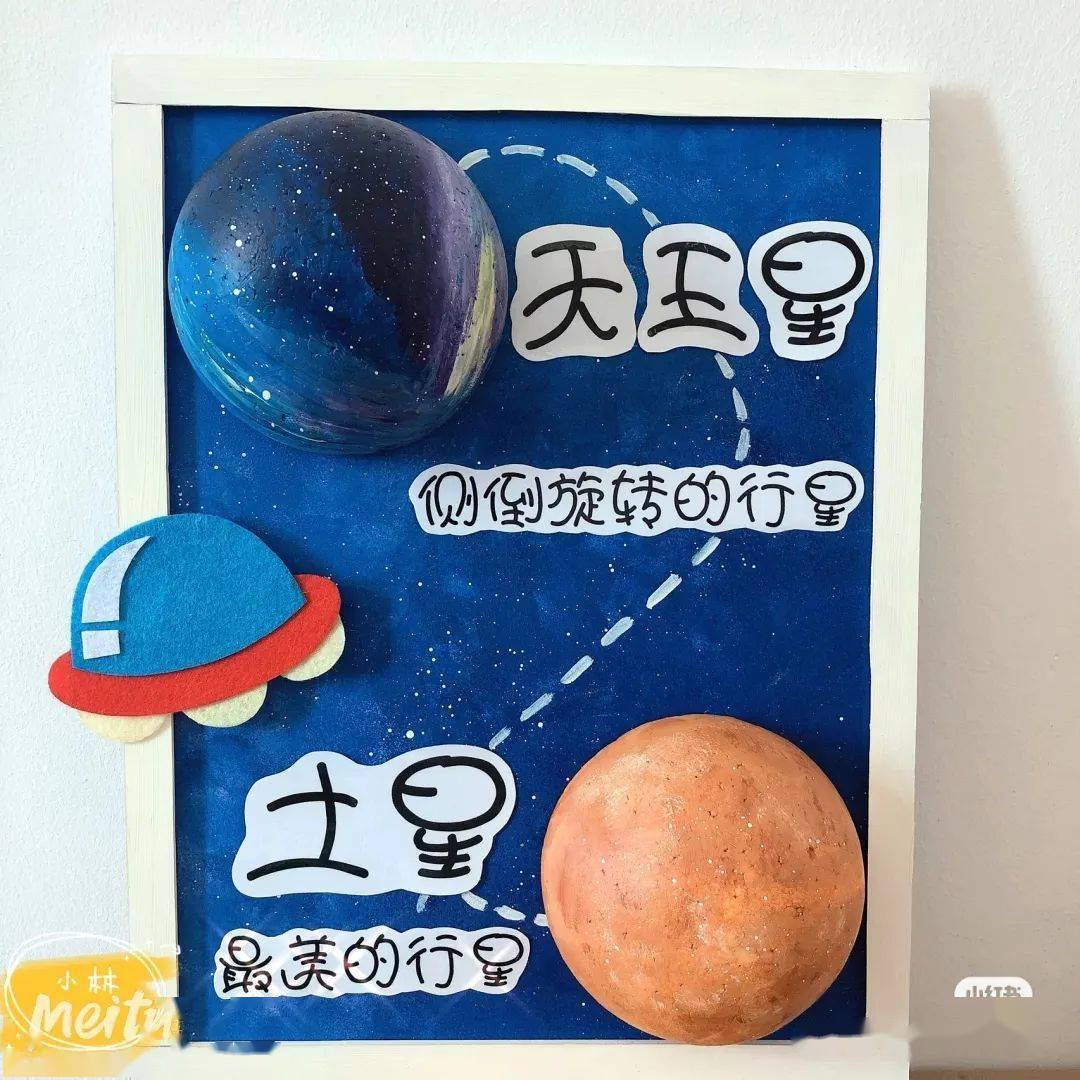 天王星
侧倒旋转的行星
土星
最美的行星
小林
Meitu
小红书